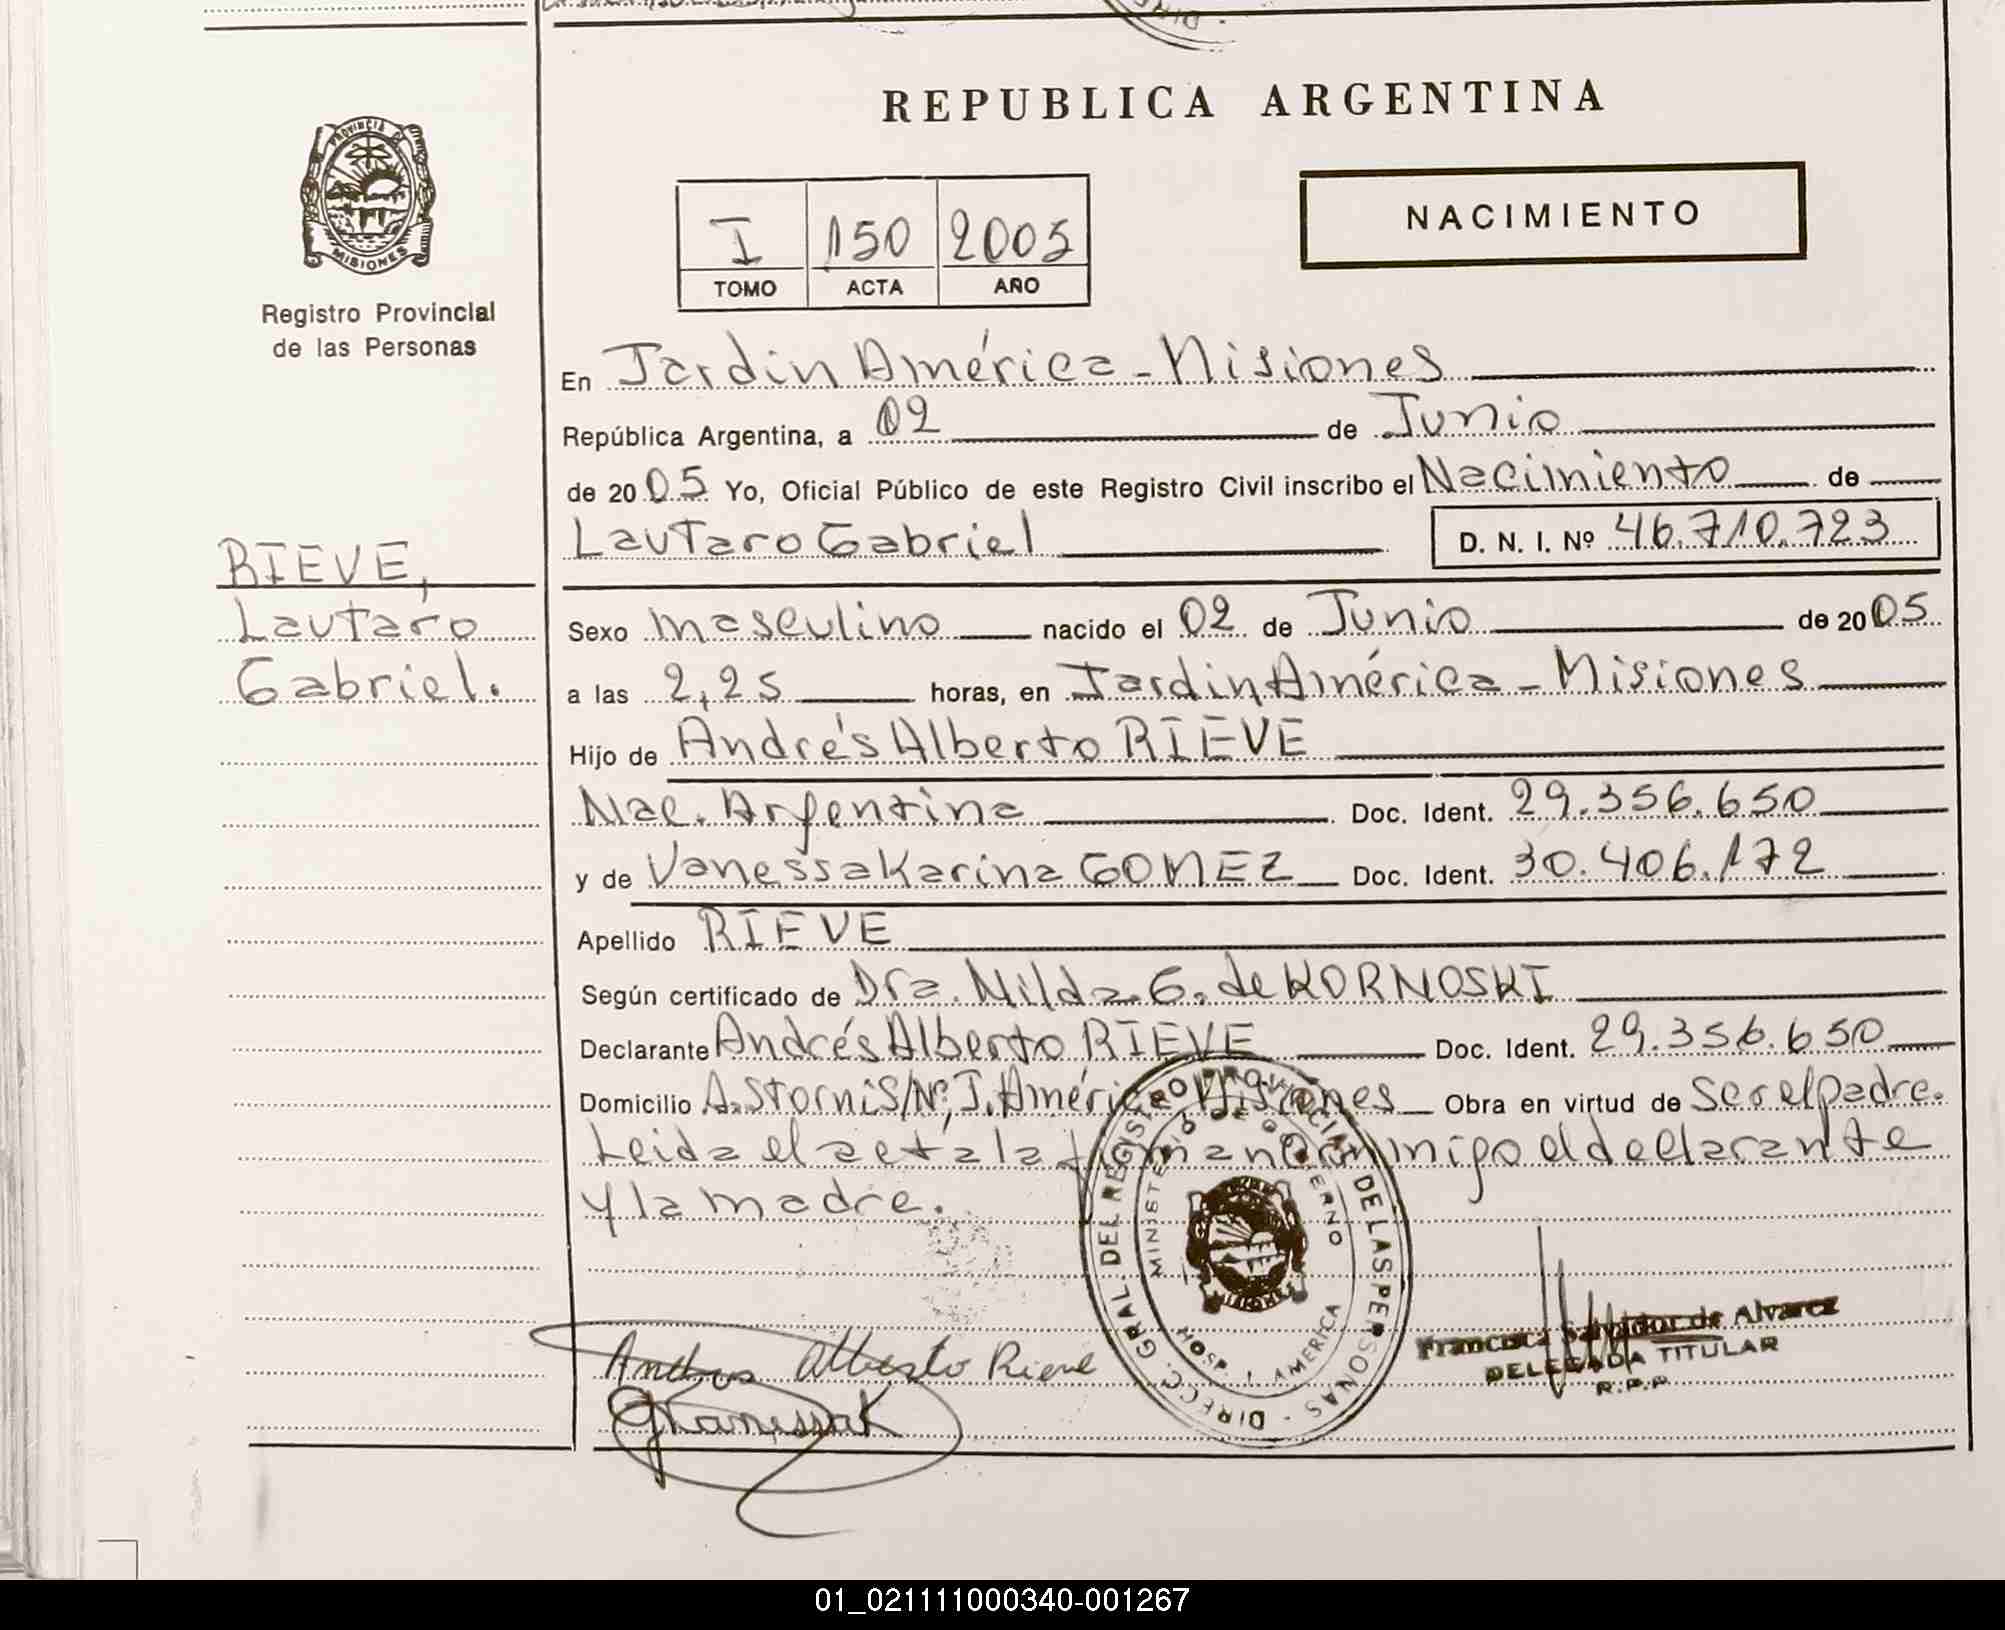 REPUBLICA ARGENTINA
PROVINCIA DE MISIONES
Registro Provincial
de las Personas
I 150 2005
TOMO ACTA AÑO
NACIMIENTO
En Jardín América - Misiones
República Argentina, a 02 de Junio
de 2005 Yo, Oficial Público de este Registro Civil inscribo el Nacimiento de
Lautaro Gabriel D. N. I. Nº 46.710.723
RIEVE,
Lautaro
Gabriel.
Sexo masculino nacido el 02 de Junio de 2005
a las 2,25 horas, en Jardín América - Misiones
Hijo de Andrés Alberto RIEVE
Nac. Argentina Doc. Ident. 29.356.650
y de Vanessa Karina GOMEZ Doc. Ident. 30.406.172
Apellido RIEVE
Según certificado de Dra. Nilda G. de KORNOSKI
Declarante Andrés Alberto RIEVE Doc. Ident. 29.356.650
Domicilio A. Storni S/Nº, J. América Misiones Obra en virtud de ser el padre.
Leida el acta la firman conmigo el declarante
y la madre.
DIRECC. GRAL. DEL REGISTRO PROVINCIAL DE LAS PERSONAS
MINISTERIO DE GOBIERNO
MISIONES
HOSP. J. AMERICA
Andres Alberto Rieve
Francisca Salvador de Alvarez
DELEGADA TITULAR
R.P.P.
01_021111000340-001267